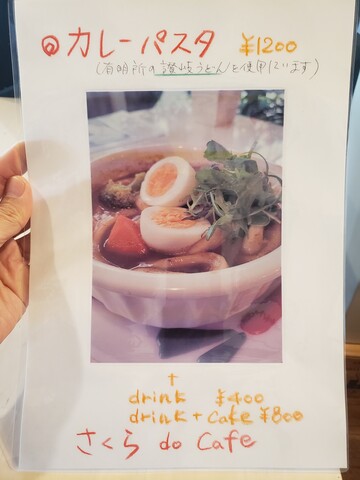 カレーパスタ ¥1200
(有明所の讃岐うどんを使用しています)
+
drink ¥400
drink + cake ¥800
さくら do Cafe